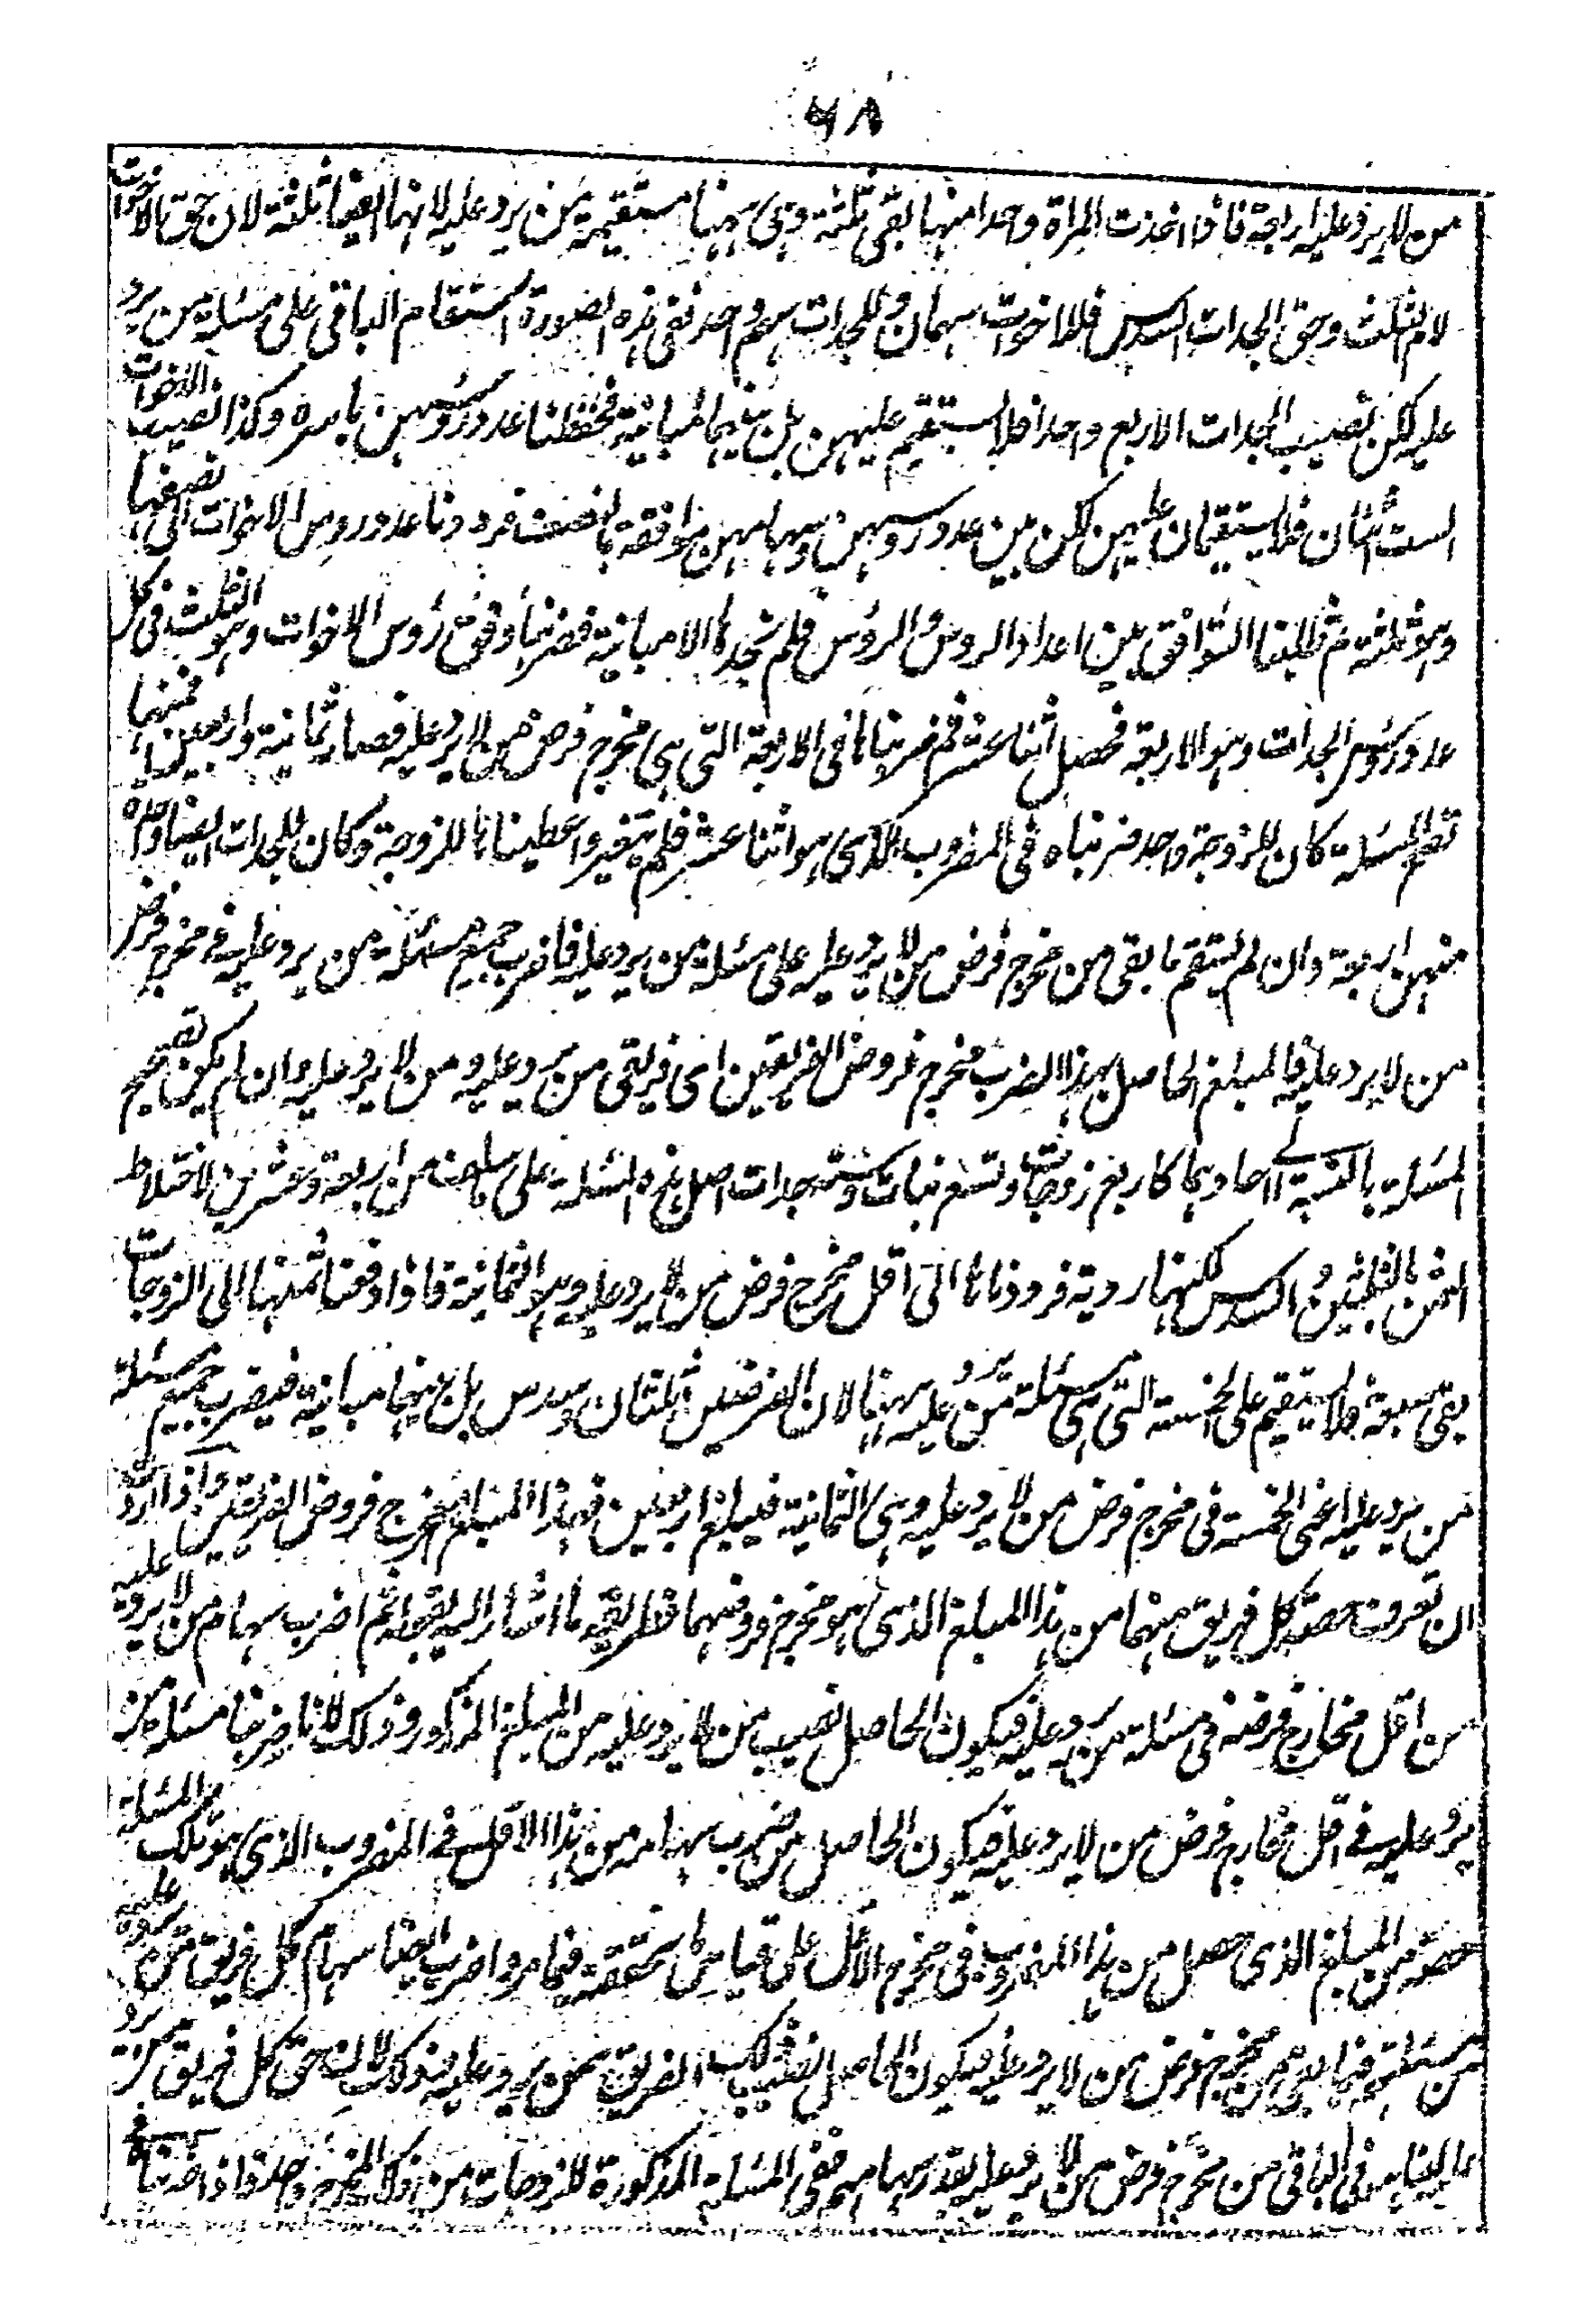 ٦٨
من لا يرد عليه اربعة فاذا اخذت المراة واحدا منها بقى ثلثة وهى ههنا مستقيمة من يرد عليه لانها ايضا ثلثة لان حق الاخوات
لام الثلث وحق الجدات السدس فللاخوات سهمان وللجدات سهم واحد ففى هذه الصورة استقام الباقى على مسئلة من يرد
عليه لكن نصيب الجدات الاربع واحد فلا يستقيم عليهن بل بينهما المباينة فحفظنا عدد رؤسهن باسره وكذا نصيب الاخوات
الست اثنان فلا يستقيمان عليهن لكن بين عدد رؤسهن وسهامهن موافقة بالنصف فرددنا عدد رؤس الاخوات الى نصفها
وهو ثلثة ثم طلبنا التوافق بين اعداد الروس والروس فلم نجدها الا مباينة فضربنا وفق رؤس الاخوات وهو الثلث فى كل
عدد رؤس الجدات وهو الاربعة فحصل اثنا عشر ثم ضربناها فى الاربعة التى هى مخرج فرض من لا يرد عليه فصار ثمانية واربعين فمنها
تصح المسئلة كان للزوجة واحد ضربناه فى المضروب الذى هو اثنا عشر فلم يتغير واعطيناها للزوجة وكان للجدات ايضا واحد
منهن اربعة وان لم يستقم ما بقى من مخرج فرض من لا يرد عليه على مسئلة من يرد عليه فاضرب جميع مسئلة من يرد عليه فى مخرج فرض
من لا يرد عليه فالمبلغ الحاصل بهذا الضرب مخرج فروض الفريقين اى فريقى من يرد عليه ومن لا يرد عليه وان لم يكن تصحيح
المسئلة بالنسبة الى احادها كاربع زوجات وتسع بنات وست جدات اصل هذه المسئلة على ما من اربعة وعشرين لاختلاط
الثمن بالثلثين والسدس لكنها ردية فرددناها الى اقل مخرج فرض من لا يرد عليه وهو الثمانية فاذا دفعنا ثمنها الى الزوجات
بقى سبعة فلا يستقيم على الخمسة التى هى مسئلة من يرد عليه ههنا لان الفرضين ثلثان وسدس بل بينهما مباينة فيضرب جميع مسئلة
من يرد عليه اعنى الخمسة فى مخرج فرض من لا يرد عليه وهى الثمانية فيبلغ اربعين فهذا المبلغ مخرج فروض الفريقين واذا اردت
ان تعرف حصة كل فريق منهما من هذا المبلغ الذى هو مخرج فروضهما فطريقه ما اشار اليه بقوله ثم اضرب سهام من لا يرد عليه
من اقل مخارج فرضه فى مسئلة من يرد عليه فيكون الحاصل نصيب من لا يرد عليه من المبلغ المذكور وذلك لانا ضربنا مسئلة من
يرد عليه فى اقل مخارج فرض من لا يرد عليه فيكون الحاصل من ضرب سهامه من هذا الاقل فى المضروب الذى هو تلك المسئلة
حصته من المبلغ الذى حصل من هذا المضروب فى مخرج الاقل على قياس ما تحققته فيما مر واضرب ايضا سهام كل فريق ممن يرد عليه
من مسئلته فيما بقى من مخرج فرض من لا يرد عليه فيكون الحاصل نصيب ذلك الفريق ممن يرد عليه وذلك لان حق كل فريق ممن يرد
عليه انما هو فى الباقى من مخرج فرض من لا يرد عليه بقدر سهامهم ففى المسئلة المذكورة للزوجات من ذلك المخرج واحد فاذا ضربناه